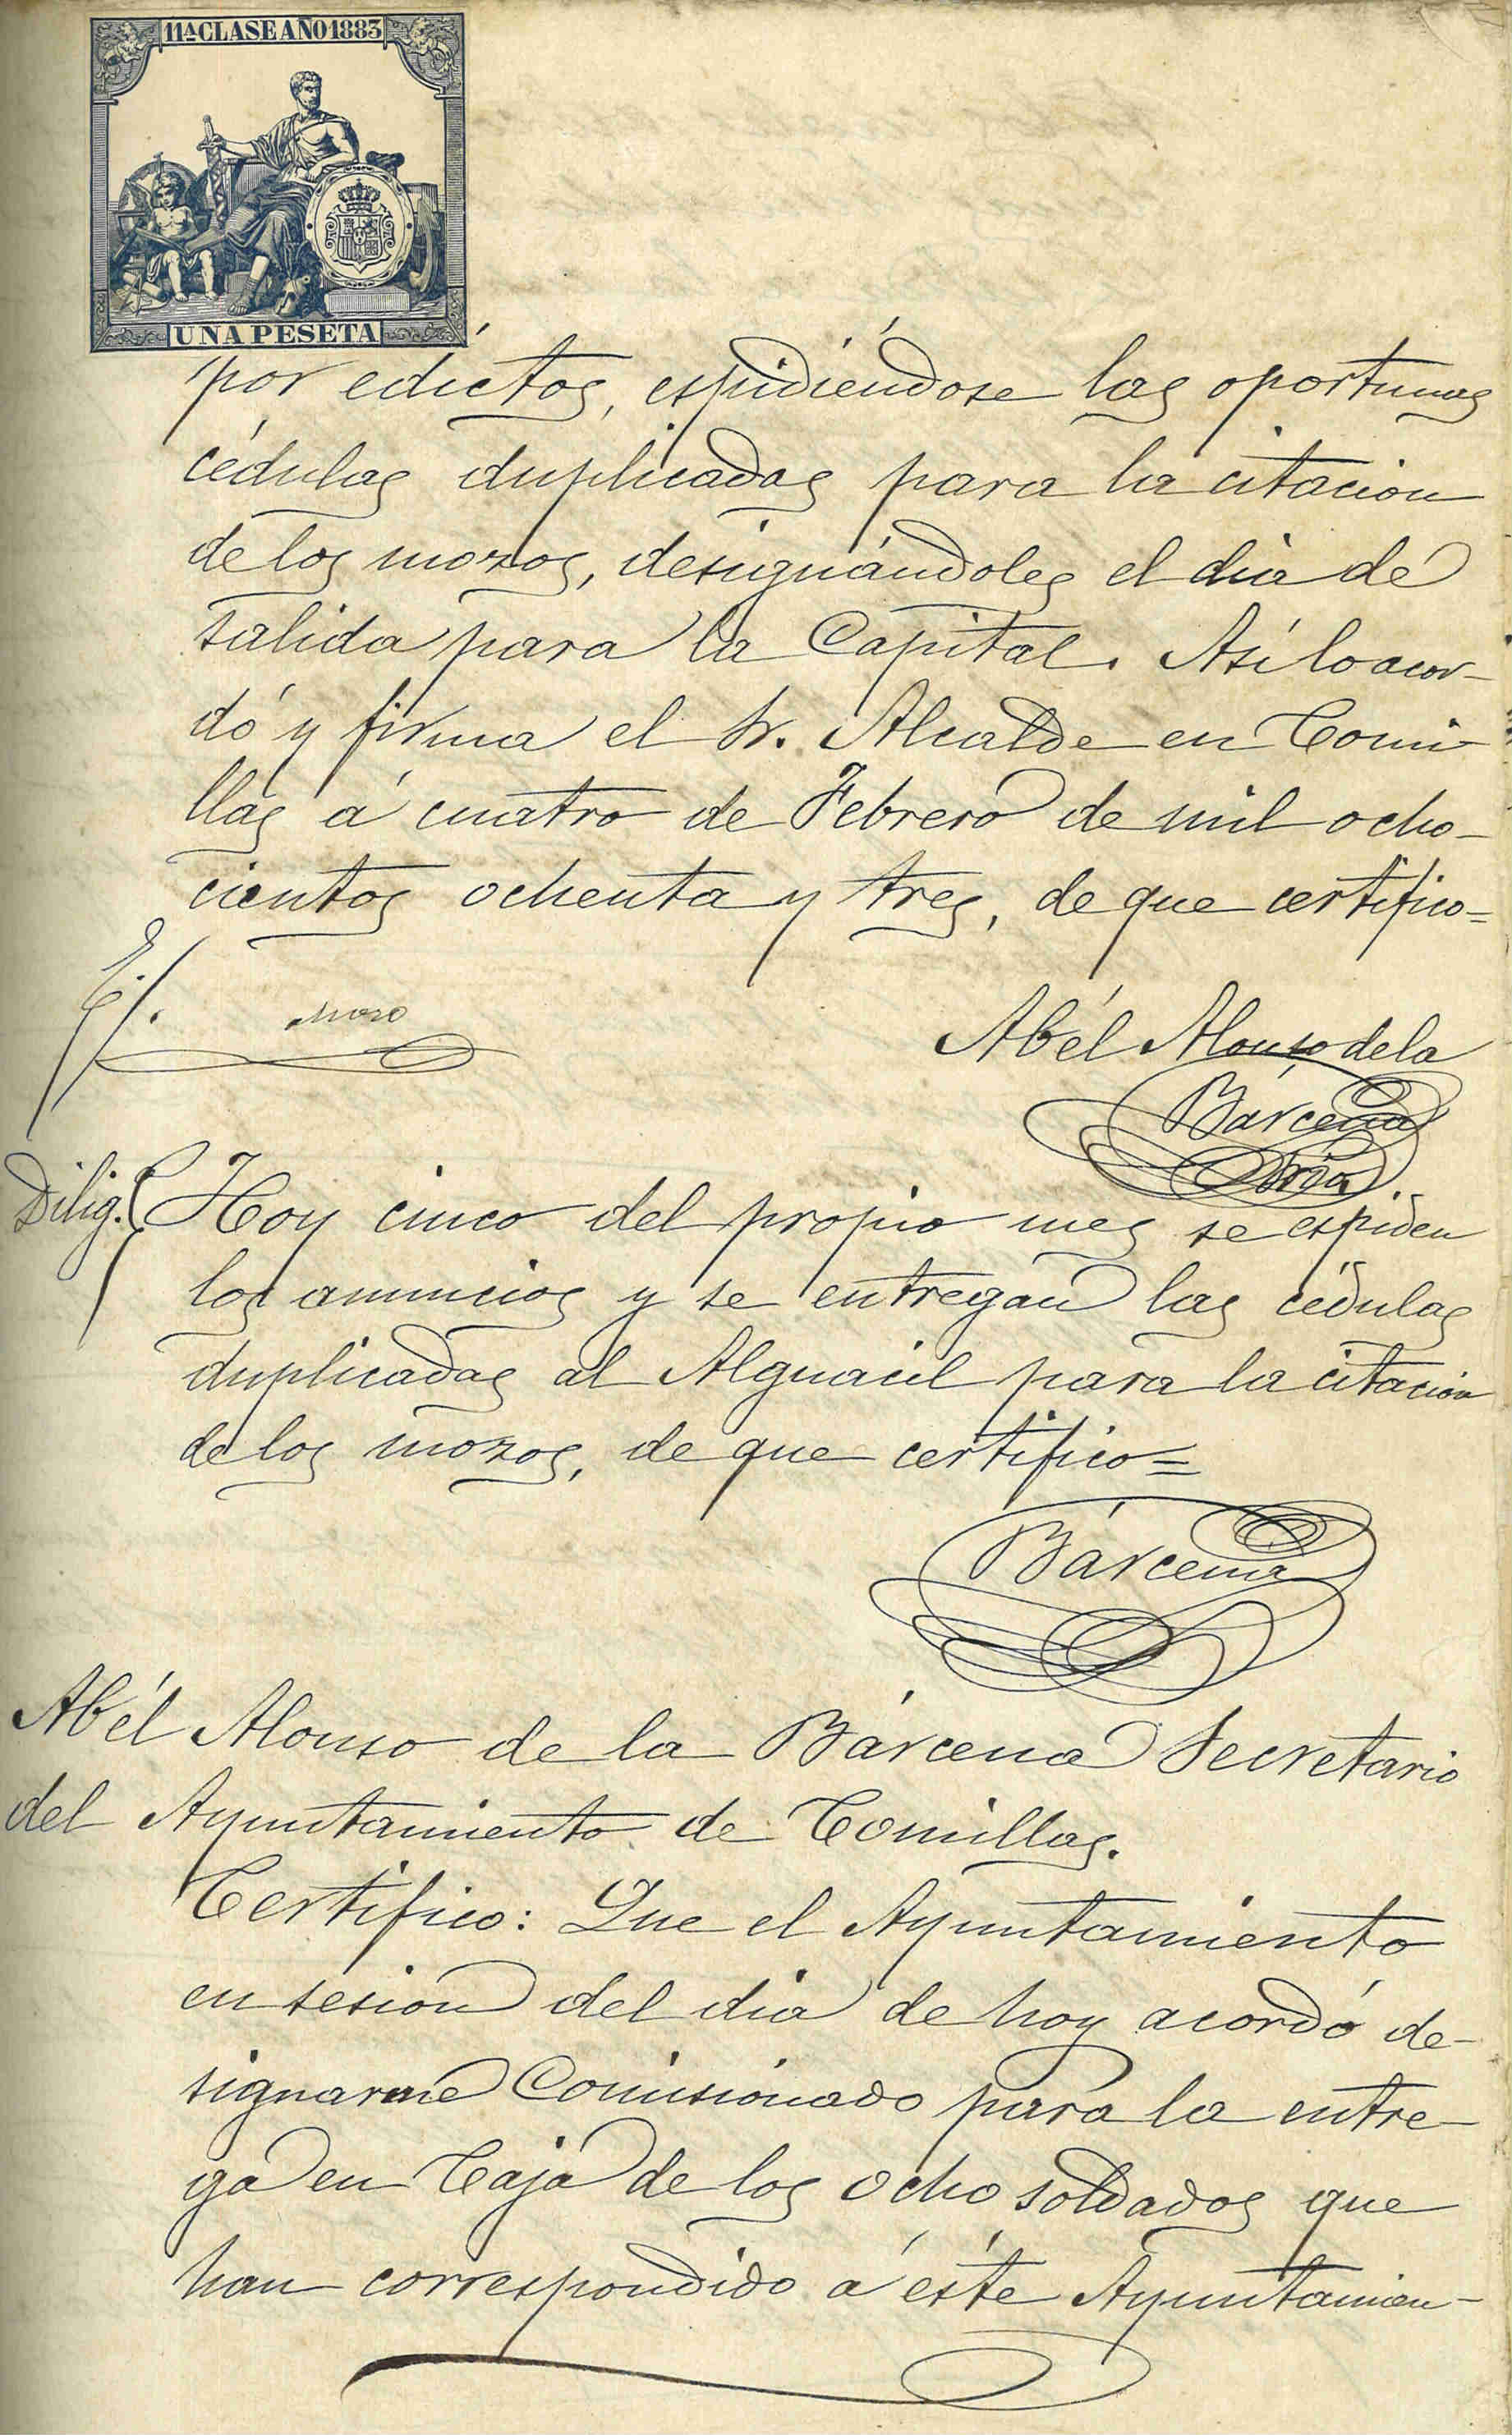 11ª CLASE AÑO 1883
UNA PESETA
por edictos, espidiéndose las oportunas
cédulas duplicadas para la citacion
de los mozos, designándoles el dia de
salida para la Capital. Así lo acor-
dó y firma el Sr. Alcalde en Comi-
llas á cuatro de Febrero de mil ocho-
cientos ochenta y tres, de que certifico=
Abél Alonso de la
Bárcena
Srio.
Dilig.
Hoy cinco del propio mes se espiden
los anuncios y se entregan las cédulas
duplicadas al Alguacil para la citación
de los mozos, de que certifico=
Bárcena
Abél Alonso de la Bárcena Secretario
del Ayuntamiento de Comillas.
Certifico: Que el Ayuntamiento
en sesion del dia de hoy acordó de-
signarme Comisionado para la entre-
ga en Caja de los ocho soldados que
han correspondido á éste Ayuntamien-